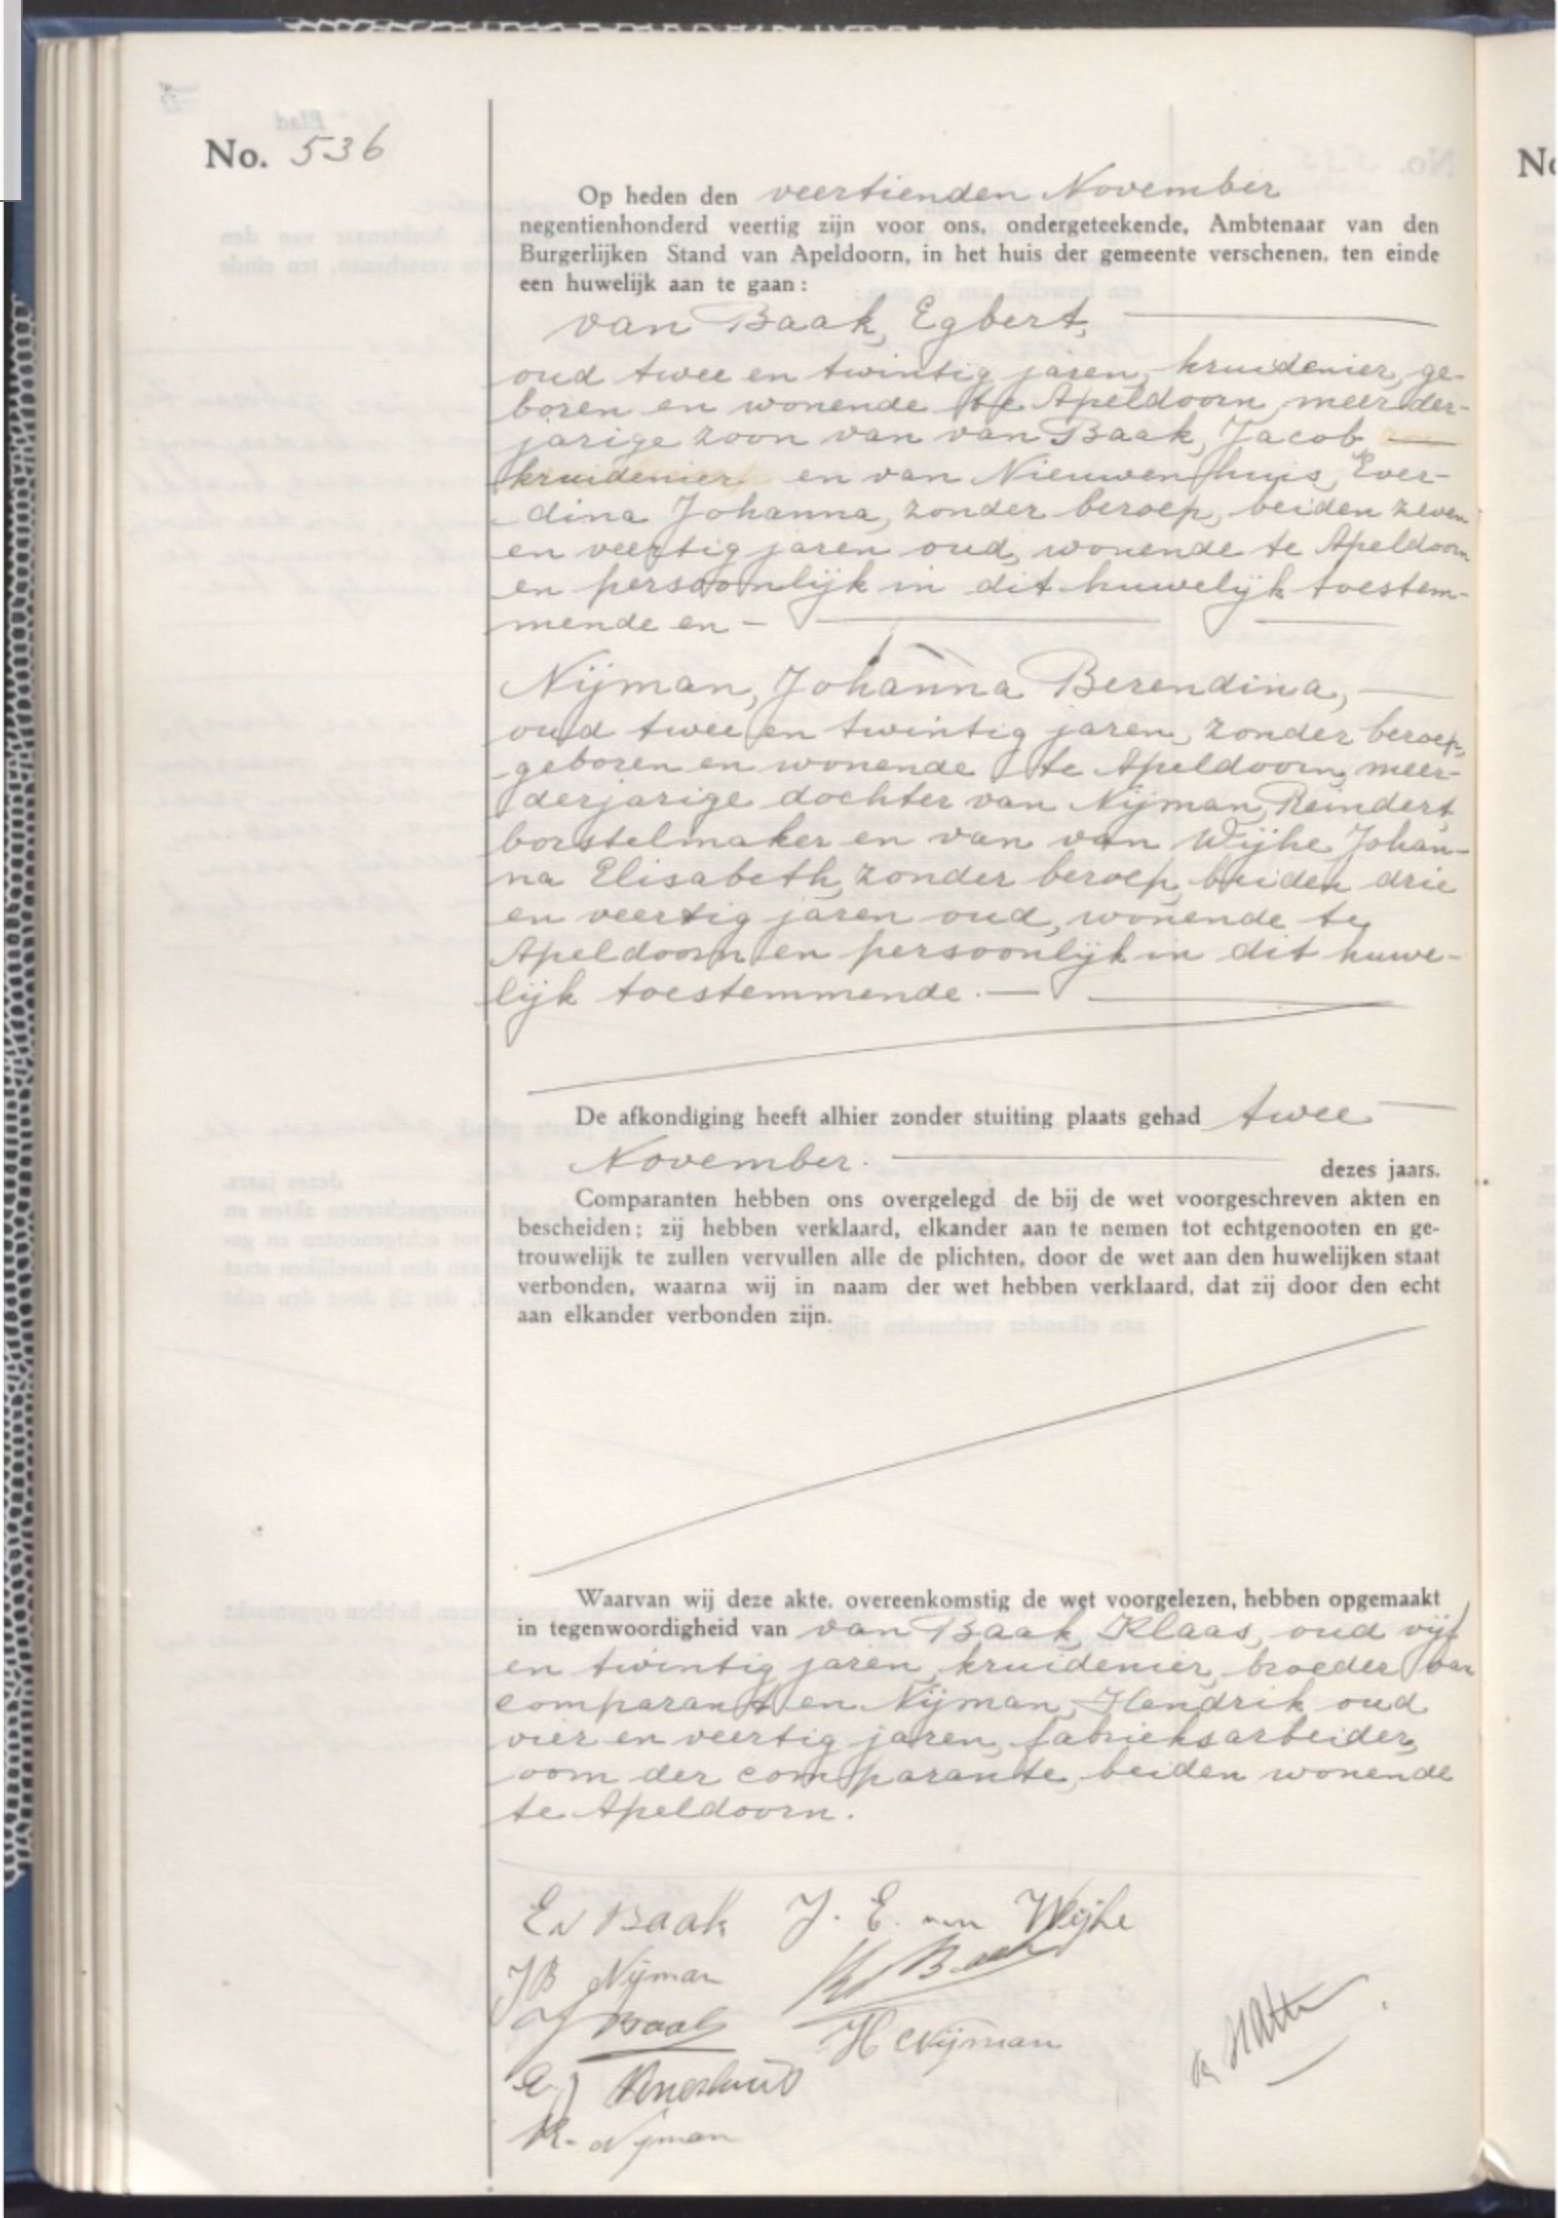 No. 536
Op heden den veertienden November
negentienhonderd veertig zijn voor ons, ondergeteekende, Ambtenaar van den
Burgerlijken Stand van Apeldoorn, in het huis der gemeente verschenen, ten einde
een huwelijk aan te gaan:
van Baak, Egbert,
oud twee en twintig jaren, kruidenier, ge-
boren en wonende te Apeldoorn, meerder-
jarige zoon van van Baak, Jacob,
kruidenier en van Nieuwenhuis, Ever-
dina Johanna, zonder beroep, beiden zeven
en veertig jaren oud, wonende te Apeldoorn
en persoonlijk in dit huwelijk toestem-
mende en -
Nijman, Johanna Berendina,
oud twee en twintig jaren, zonder beroep,
geboren en wonende te Apeldoorn, meer-
derjarige dochter van Nijman, Reindert,
borstelmaker en van van Wijhe, Johan-
na Elisabeth, zonder beroep, beiden drie
en veertig jaren oud, wonende te
Apeldoorn en persoonlijk in dit huwe-
lijk toestemmende.
De afkondiging heeft alhier zonder stuiting plaats gehad twee
November. dezes jaars.
Comparanten hebben ons overgelegd de bij de wet voorgeschreven akten en
bescheiden; zij hebben verklaard, elkander aan te nemen tot echtgenooten en ge-
trouwelijk te zullen vervullen alle de plichten, door de wet aan den huwelijken staat
verbonden, waarna wij in naam der wet hebben verklaard, dat zij door den echt
aan elkander verbonden zijn.
Waarvan wij deze akte, overeenkomstig de wet voorgelezen, hebben opgemaakt
in tegenwoordigheid van van Baak, Klaas, oud vijf
en twintig jaren, kruidenier, broeder van
comparant en Nijman, Hendrik, oud
vier en veertig jaren, fabrieksarbeider,
oom der comparante, beiden wonende
te Apeldoorn.
E v Baak J. E. van Wijhe
JB Nijman K v Baak
J v Baak H Nijman
E J
R. Nijman